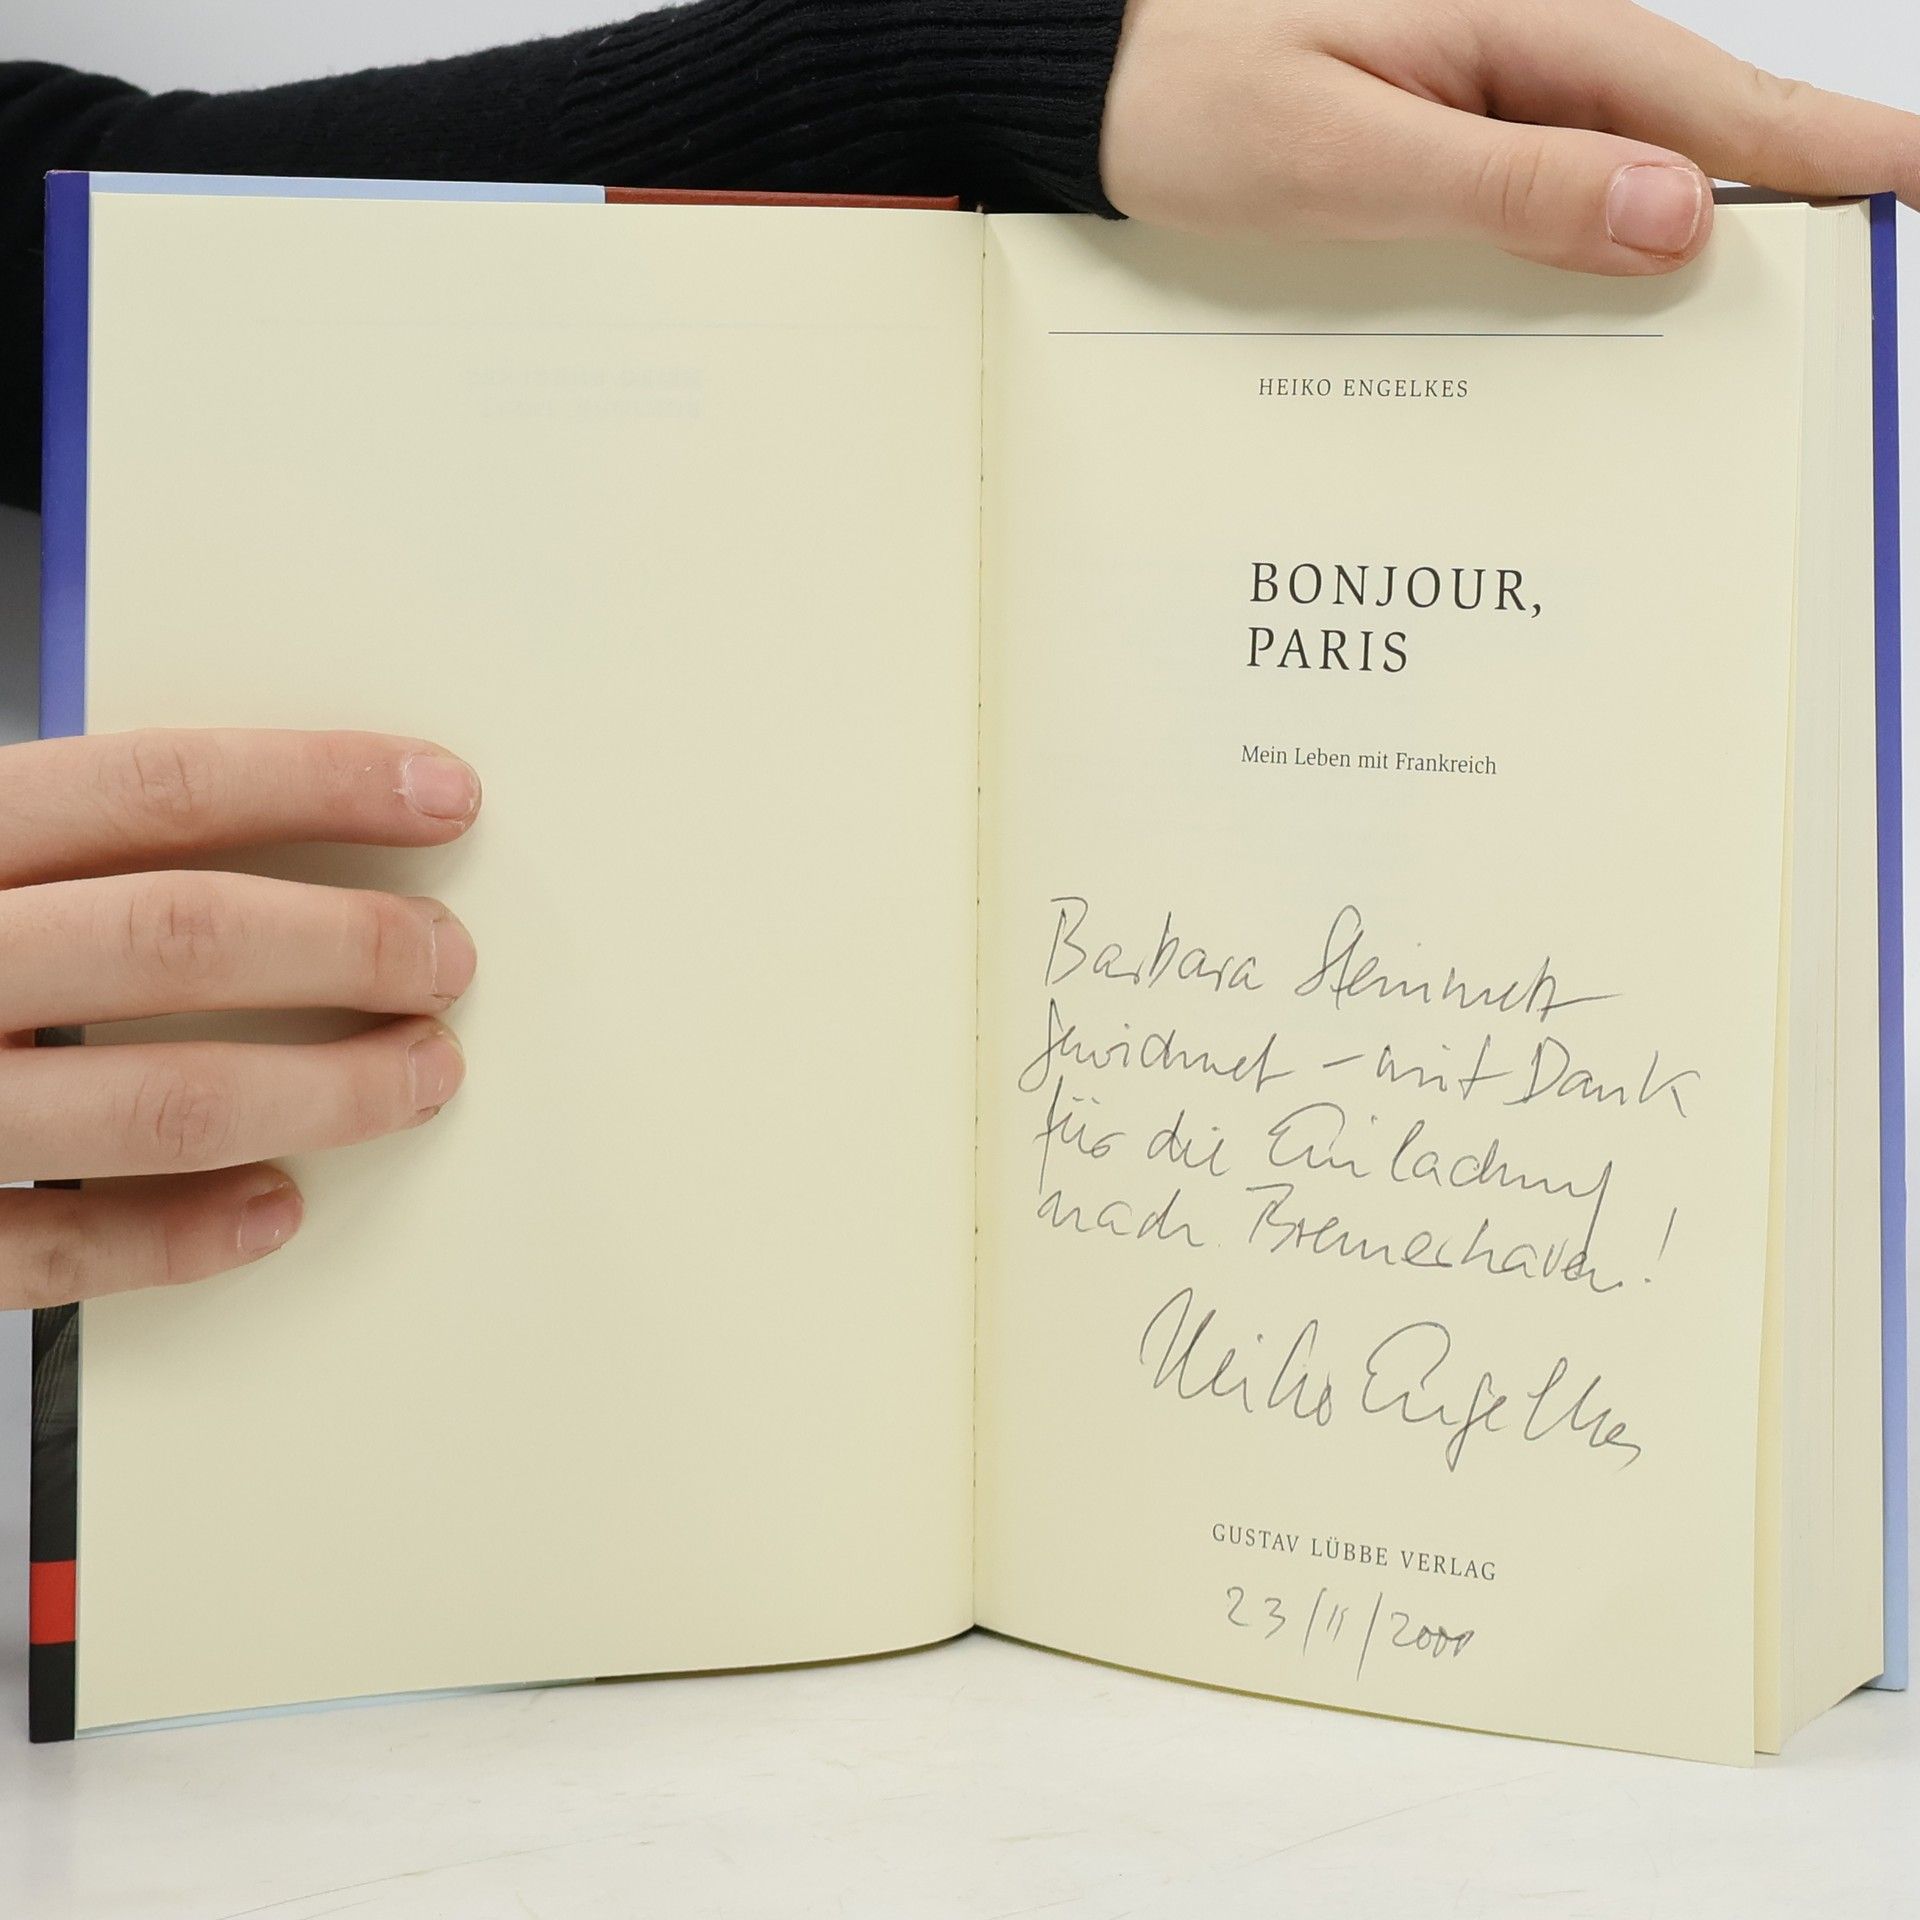 HEIKO ENGELKES
BONJOUR,
PARIS
Mein Leben mit Frankreich
Barbara Steinmetz
gewidmet – mit Dank
für die Einladung
nach Bremerhaven!
Heiko Engelkes
GUSTAV LÜBBE VERLAG
23/11/2000